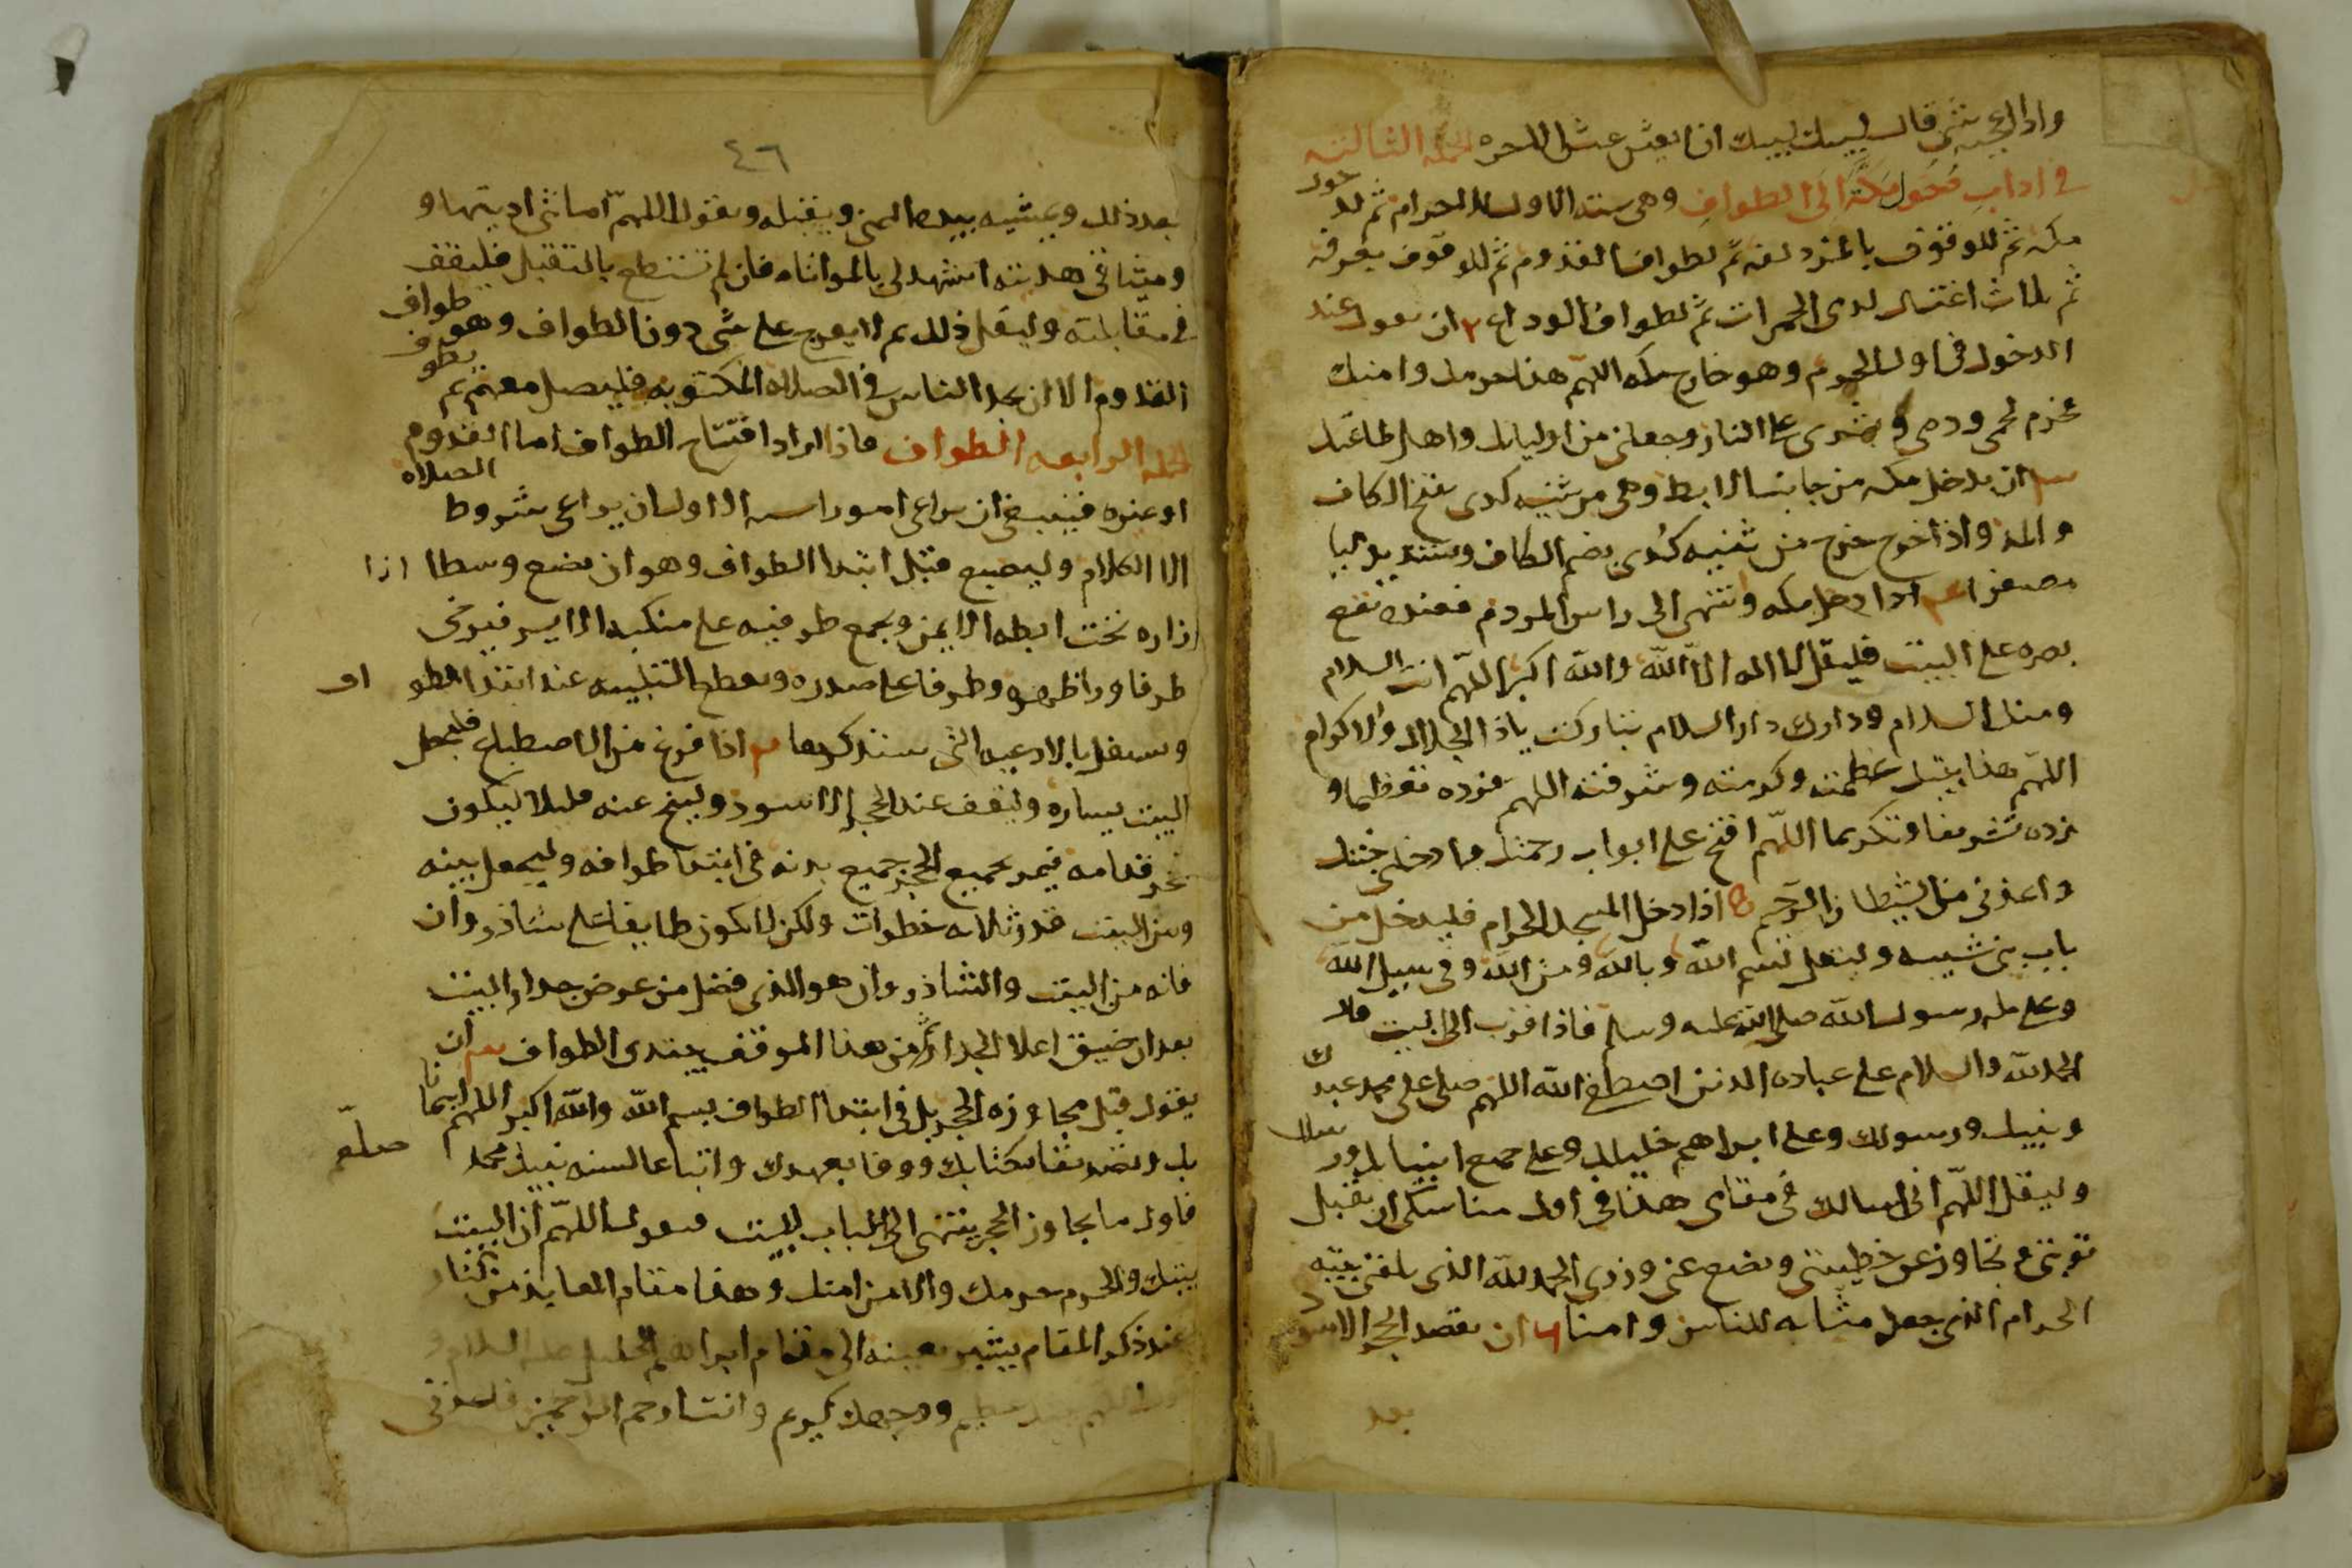 واذا اعجبه شي قال لبيك لبيك ان العيش عيش الاخره الجمله الثالثه
في اداب دخول مكة الى الطواف وهي سته الاول للاحرام ثم لدخول
مكه ثم للوقوف بالمزدلفه ثم لطواف القدوم ثم للوقوف بعرفه
ثم ثلاث اغتسال لدى الجمرات ثم لطواف الوداع ٢ ان يقول عند
الدخول في اول الحرم وهو خارج مكه اللهم هذا حرمك وامنك
فحرم لحمي ودمي وبشري على النار وجعلني من اوليائك واهل طاعتك
ان يدخل مكه من جانب الابط وهي من ثنيه كدى بفتح الكاف
والمد واذا خرج خرج من ثنيه كُدى بضم الكاف وتشديد اليا
مصغرا اذا دخل مكه وانتهى الى راس الردم فعنده تقع
بصره على البيت فليقل لا اله الا الله والله اكبر اللهم انت السلام
ومنك السلام ودارك دار السلام تباركت ياذا الجلال والاكرام
اللهم هذا بيتك عظمته وكرمته وشرفته اللهم فزده تعظيما و
زده تشريفا وتكريما اللهم افتح على ابواب رحمتك وادخلني جنتك
واعذني من الشيطان الرجيم اذا دخل المسجد الحرام فليدخل من
باب بني شيبه وليقل بسم الله وبالله ومن الله وفي سبيل الله
وعلى مله رسول الله صلى الله عليه وسلم فاذا قرب الى البيت قال
الحمد لله والسلام على عباده الذين اصطفى الله اللهم صلى على محمد عبدك
ونبيك ورسولك وعلى ابراهيم خليلك وعلى جميع انبيائك ورسلك
وليقل اللهم اني اسالك في مقامي هذا في اول مناسكي ان تقبل
توبتي وتجاوز عن خطيئتي وتضع عني وزري الحمد لله الذي بلغني بيته
الحرام الذي جعله مثابه للناس وامنا ٦ ان يقصد الحجر الاسود
بعد
٤٦
بعد ذلك ويمسه بيده اليمنى ويقبله ويقول اللهم امانتي اديتها و
وميثاقي هديته اشهد لي بالموافاه فان لم تستطع بالتقبيل فليقف
في مقابلته وليقل ذلك ثم لا يعرج على شي دون الطواف وهو طواف
القدوم الا ان يجد الناس في الصلاه المكتوبه فليصل معهم ثم يطوف
الجمله الرابعه الطواف فاذا اراد افتتاح الطواف اما القدوم
او غيره فينبغي ان يراعى امورا سته الاول ان يراعى شروط الصلاه
الا الكلام وليضبع قبل ابتدا الطواف وهو ان يضع وسطا ازا
زاره تحت ابطه الايمن ويجمع طرفيه على منكبه الايسر فيرخى
طرفا ورا ظهره وطرفا على صدره ويقطع التلبيه عند ابتدا الطواف
ويشتغل بالادعيه التي سنذكرها اذا فرغ من الاضطباع فليجعل
البيت يساره وليقف عند الحجر الاسود وليتنح عنه قليلا ليكون
الحجر قدامه فيمر بجميع الحجر جميع بدنه في ابتدا طوافه وليجعل بينه
وبين البيت قدر ثلاثه خطوات ولكن لا يكون طايفا على شاذروان
فانه من البيت والشاذروان هو الذي فضل من عرض جدار البيت
بعد ان ضيق اعلا الجدار ثم من هذا الموقف يبتدى الطواف ان
يقول قبل مجاوزه الحجر بل في ابتدا الطواف بسم الله والله اكبر اللهم ايمانا
بك وتصديقا بكتابك ووفا بعهدك واتباعا لسنه نبيك محمد صلعم
فاول ما يجاوز الحجر ينتهى الى الباب للبيت فيقول اللهم ان البيت
بيتك والحرم حرمك والامن امنك وهذا مقام العايذ من النار
عند ذكر المقام يشير بعينه الى مقام ابراهيم الخليل عليه السلام و
ووجهك كريم وانت ارحم الراحمين فاعذني